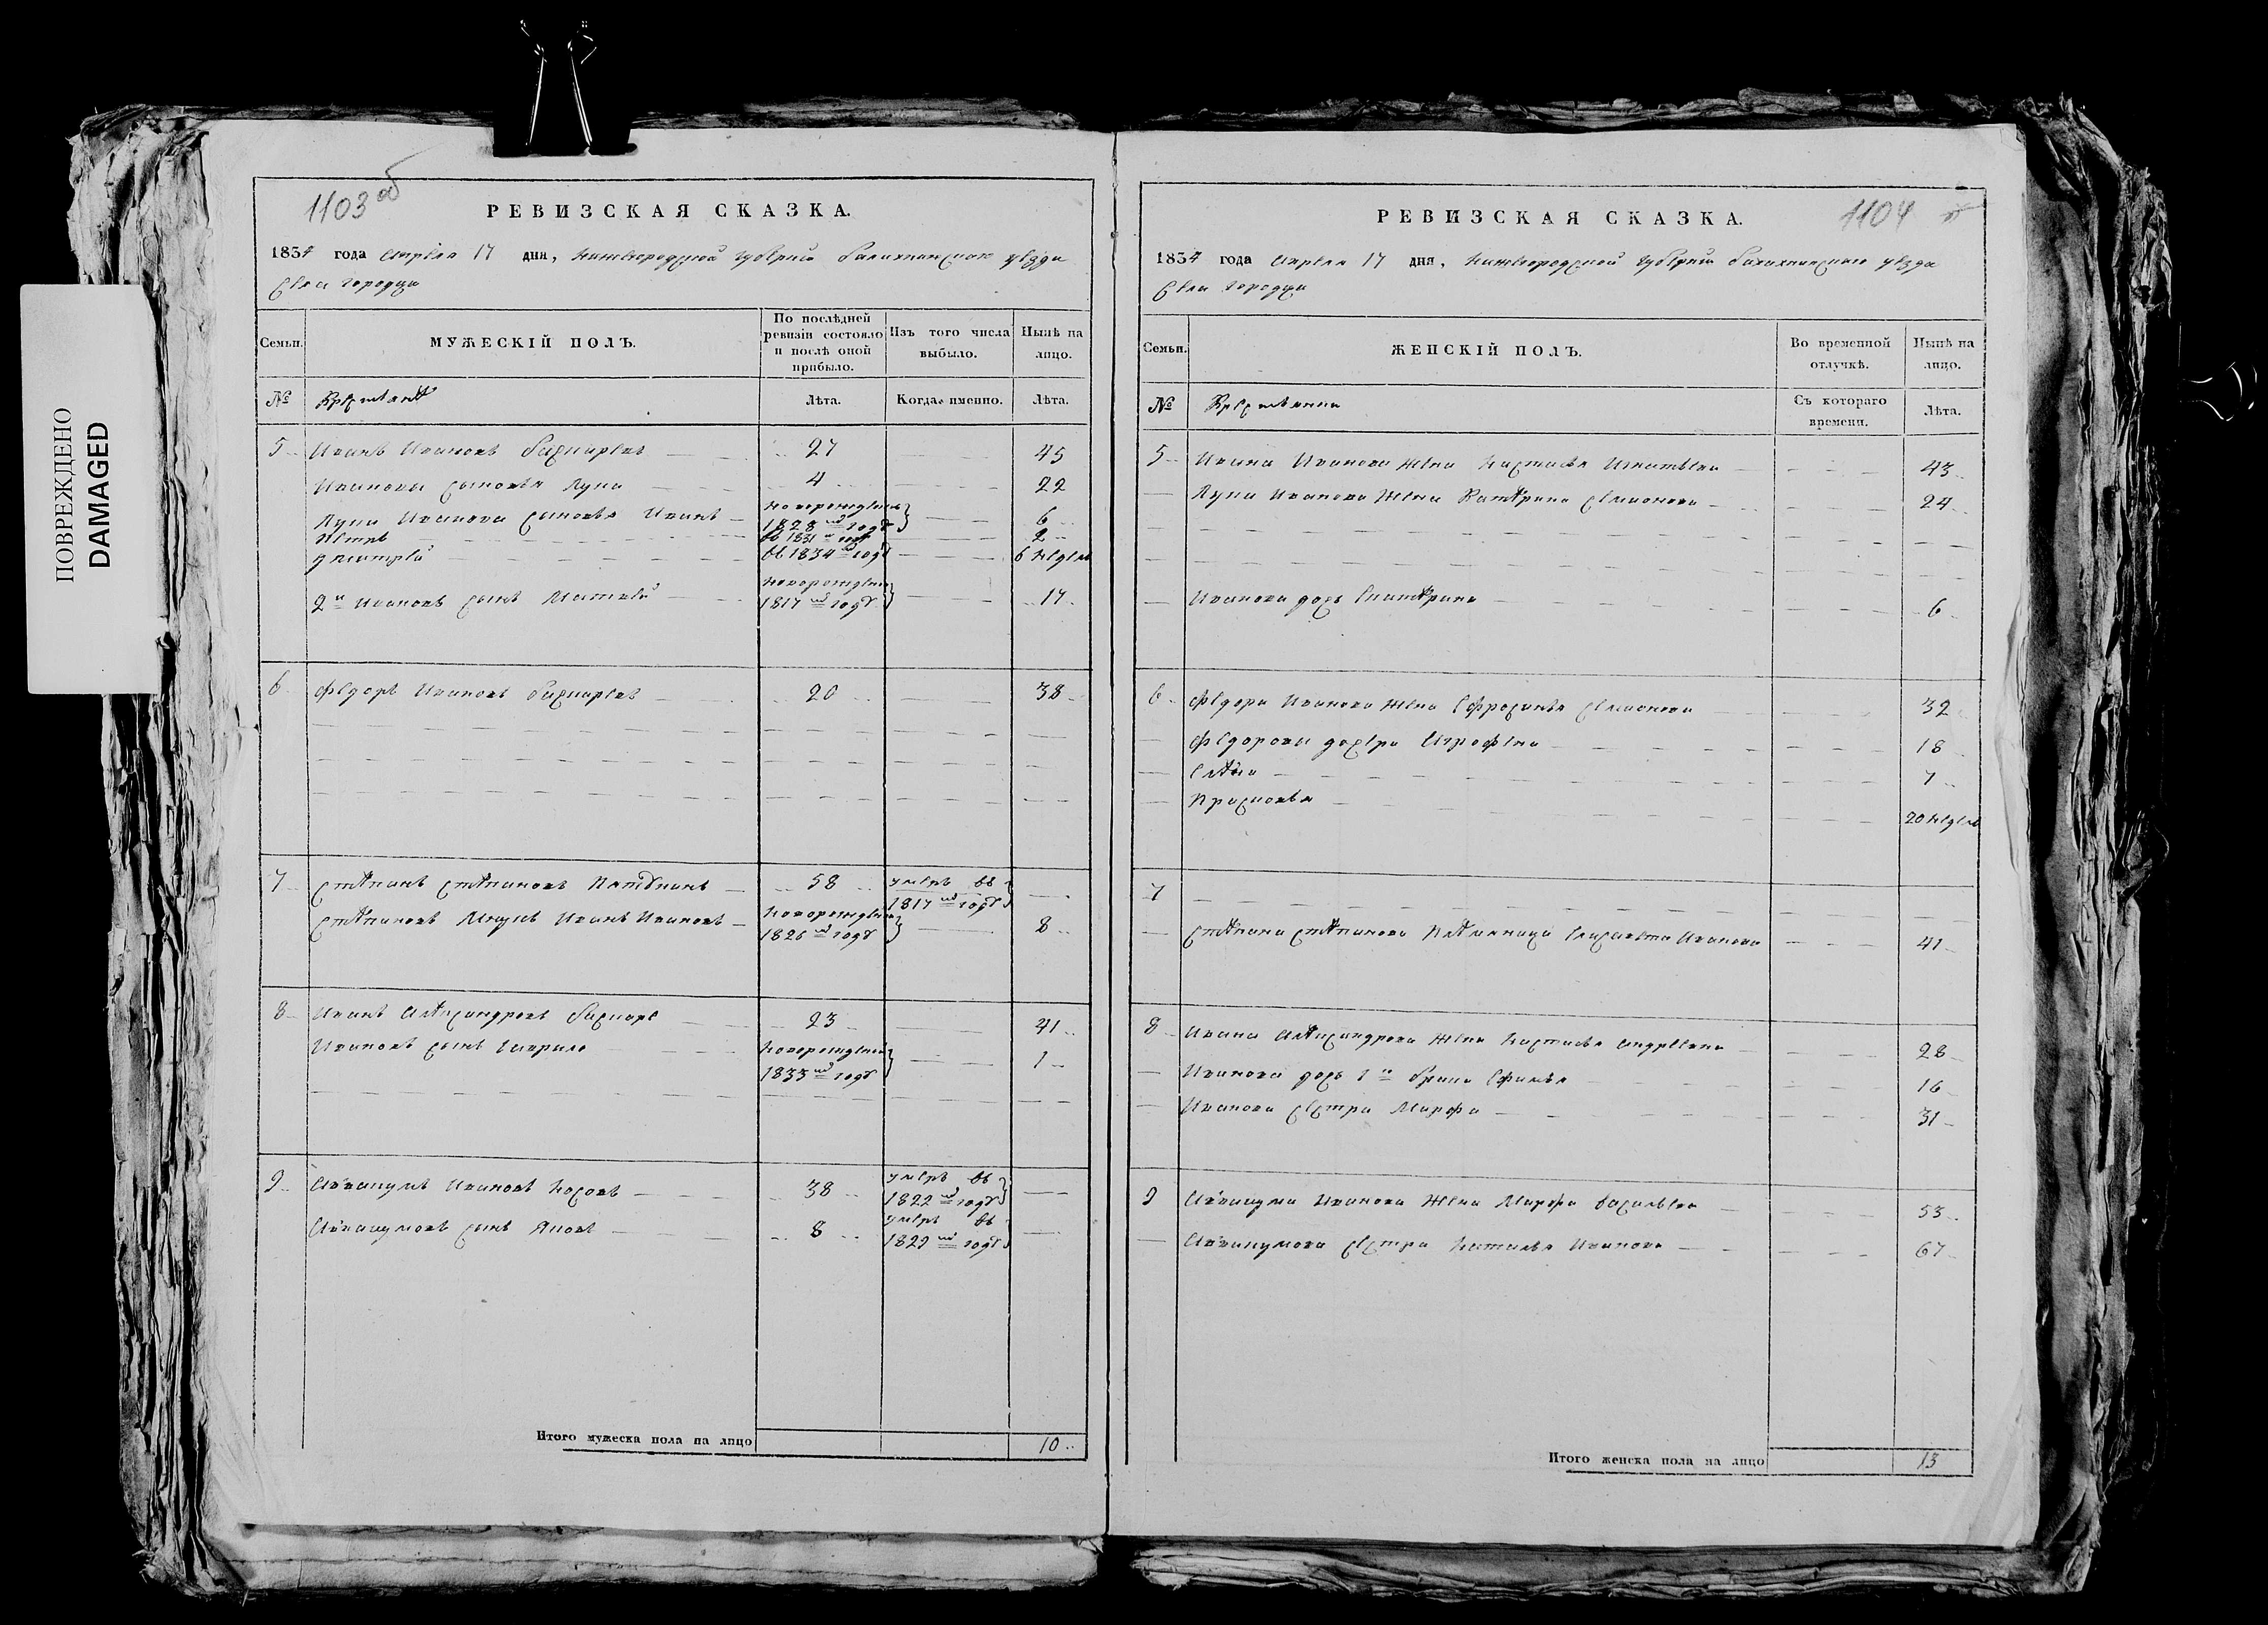 ПОВРЕЖДЕНО
DAMAGED
1103 об
РЕВИЗСКАЯ СКАЗКА.
1834 года Апреля 17 дня, Нижегородской Губернии Балахнинского уезда
Села Городца
Семьи.
МУЖЕСКІЙ ПОЛЪ.
По послѣдней ревизіи состояло и послѣ оной прибыло.
Изъ того числа выбыло.
Нынѣ на лицо.
№ Крестьяне Лѣта. Когда именно. Лѣта.
5 Иванъ Ивановъ 27 45
Ивановы сыновья Лупа 4 22
Лупы Иванова сыновья Иванъ новорожденъ 1828 году 6
Петръ въ 1831 году 2
Дмитрей въ 1834 году 6 недель
2й Ивановъ сынъ Матвей новорожденъ 1817 году 17
6 Федоръ Ивановъ 20 38
7 Степанъ Степановъ 58 умеръ въ 1817 году
Степановъ Иванъ Ивановъ новорожденъ 1826 году 8
8 Иванъ Александровъ 23 41
Ивановъ сынъ Гаврило новорожденъ 1833 году 1
9 Авакумъ Ивановъ Носовъ 38 умеръ въ 1822 году
Авакумовъ сынъ Яковъ 8 умеръ въ 1829 году
Итого мужеска пола на лицо 10
1104
РЕВИЗСКАЯ СКАЗКА.
1834 года Апреля 17 дня, Нижегородской Губернии Балахнинского уезда
Села Городца
Семьи.
ЖЕНСКІЙ ПОЛЪ.
Во временной отлучкѣ.
Нынѣ на лицо.
№ Крестьянки Съ котораго времени. Лѣта.
5 Ивана Иванова жена Настасья Игнатьева 43
Лупы Иванова жена Катерина Семионова 24
Иванова дочь Екатерина 6
6 Федора Иванова жена Ефросинья Семионова 32
Федоровы дочери Аграфена 18
Елена 7
Просковья 20 недель
7
Степана Степанова племянница Елизавета Иванова 41
8 Ивана Александрова жена Настасья Андреевна 28
Иванова дочь 1го брака Ефимья 16
Иванова сестра Марфа 31
9 Авакума Иванова жена Марфа Васильева 53
Авакумова сестра Наталья Иванова 67
Итого женска пола на лицо 13